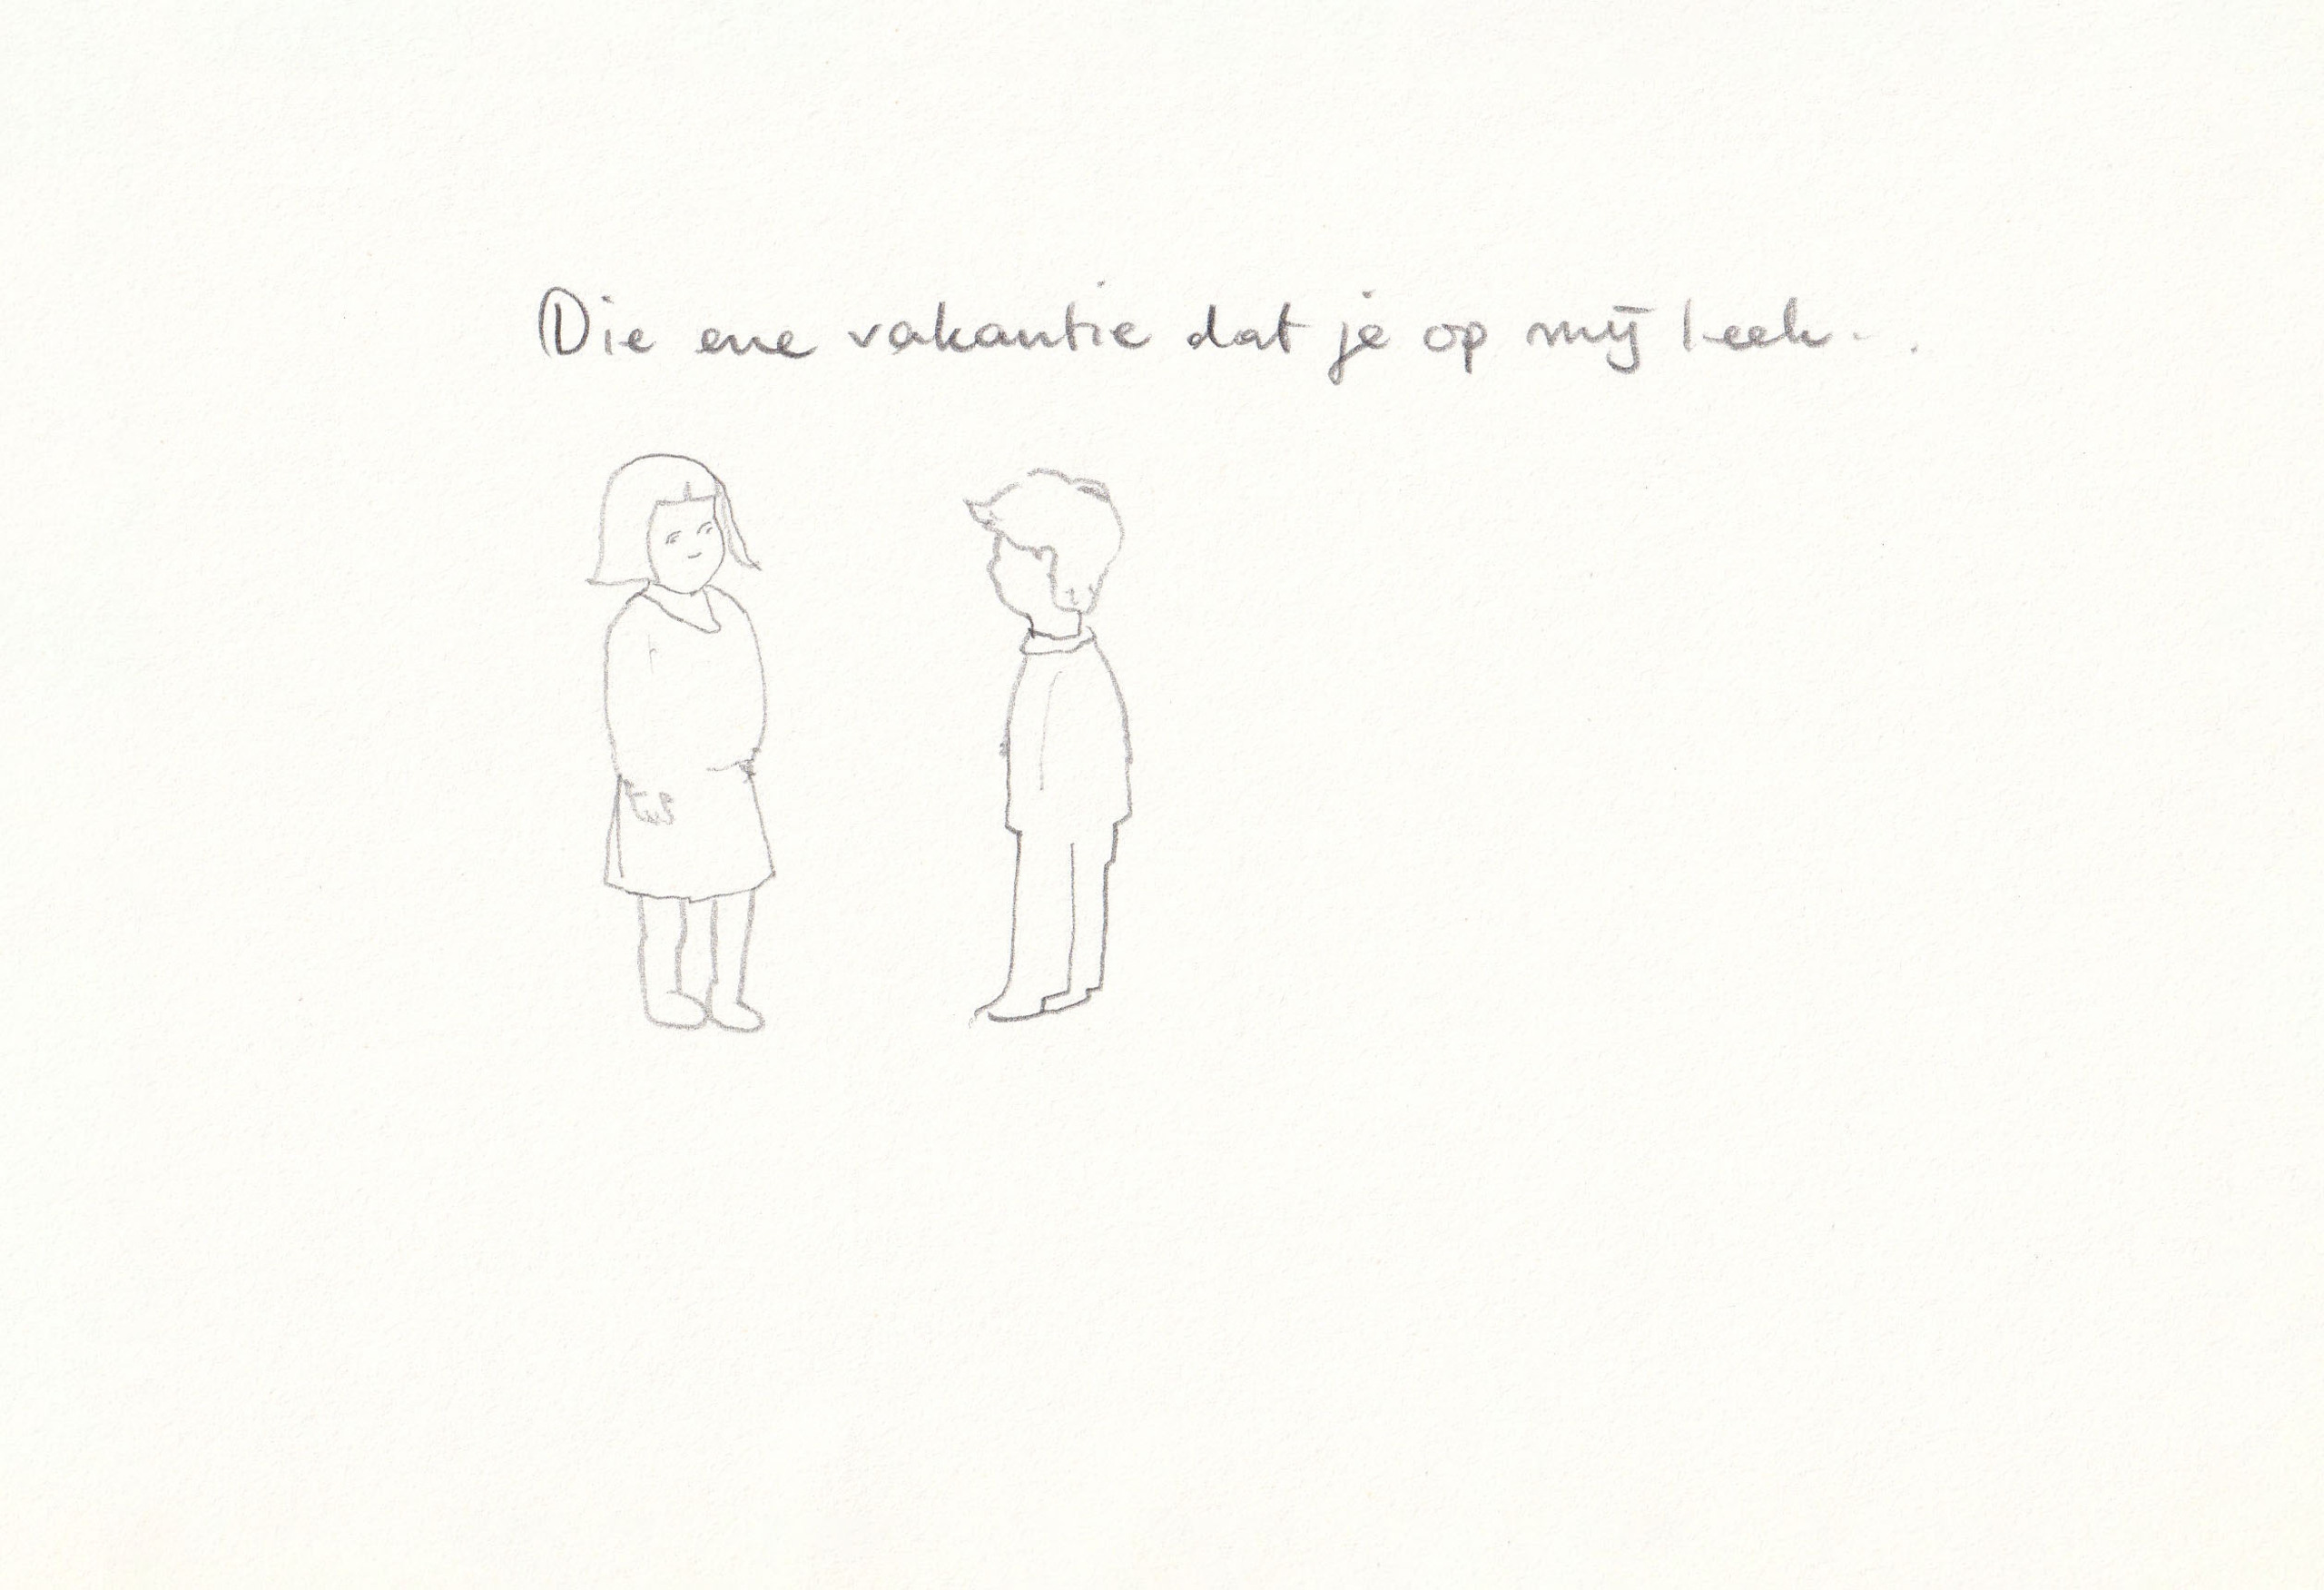 Die ene vakantie dat je op mij leek..